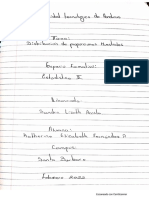 Universidad Tecnológica de Honduras
Tema:
Distribución de proporciones Muestrales
Espacio Formativo:
Estadística II
Licenciada
Alumna:
Katherine Elizabeth Fernandez
Campus
Santa Barbara
Febrero 2022